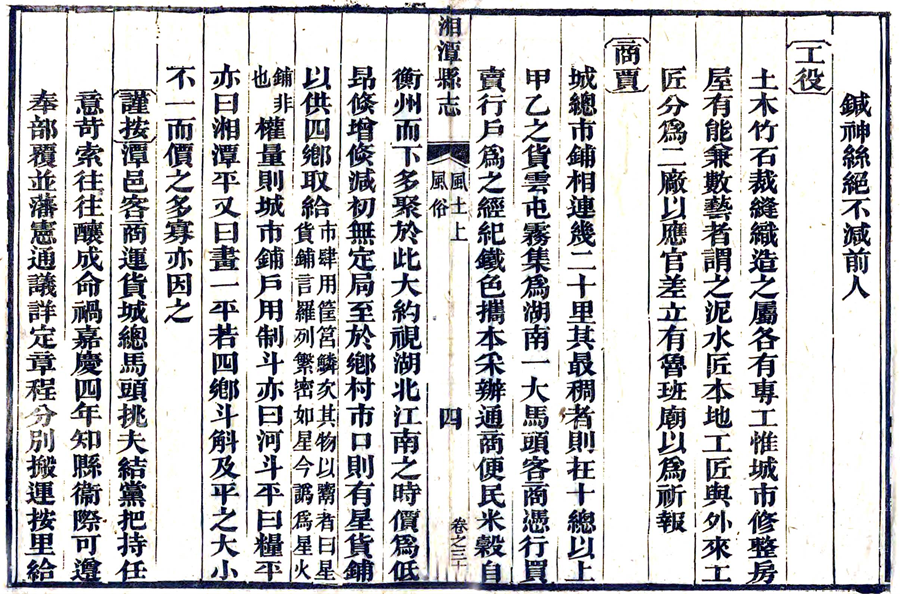 鍼神絲絕不減前人
工役
土木竹石裁縫織造之屬各有專工惟城市修整房
屋有能兼數藝者謂之泥水匠本地工匠與外來工
匠分爲二廠以應官差立有魯班廟以爲祈報
商賈
城總市鋪相連幾二十里其最稠者則在十總以上
甲乙之貨雲屯霧集爲湖南一大馬頭客商憑行買
賣行戶爲之經紀鐵色攜本采辦通商便民米穀自
湘潭縣志
風土上
風俗
四
卷之三十
衡州而下多聚於此大約視湖北江南之時價爲低
昂倏增倏減初無定局至於鄉村市口則有星貨鋪
以供四鄉取給市肆用筐筥鱗次其物以鬻者曰星
貨鋪言羅列繁密如星今譌爲星火
鋪非
也
權量則城市鋪戶用制斗亦曰河斗平曰糧平
亦曰湘潭平又曰畫一平若四鄉斗斛及平之大小
不一而價之多寡亦因之
謹按潭邑客商運貨城總馬頭挑夫結黨把持任
意苛索往往釀成命禍嘉慶四年知縣衞際可遵
奉部覆並藩憲通議詳定章程分別搬運按里給